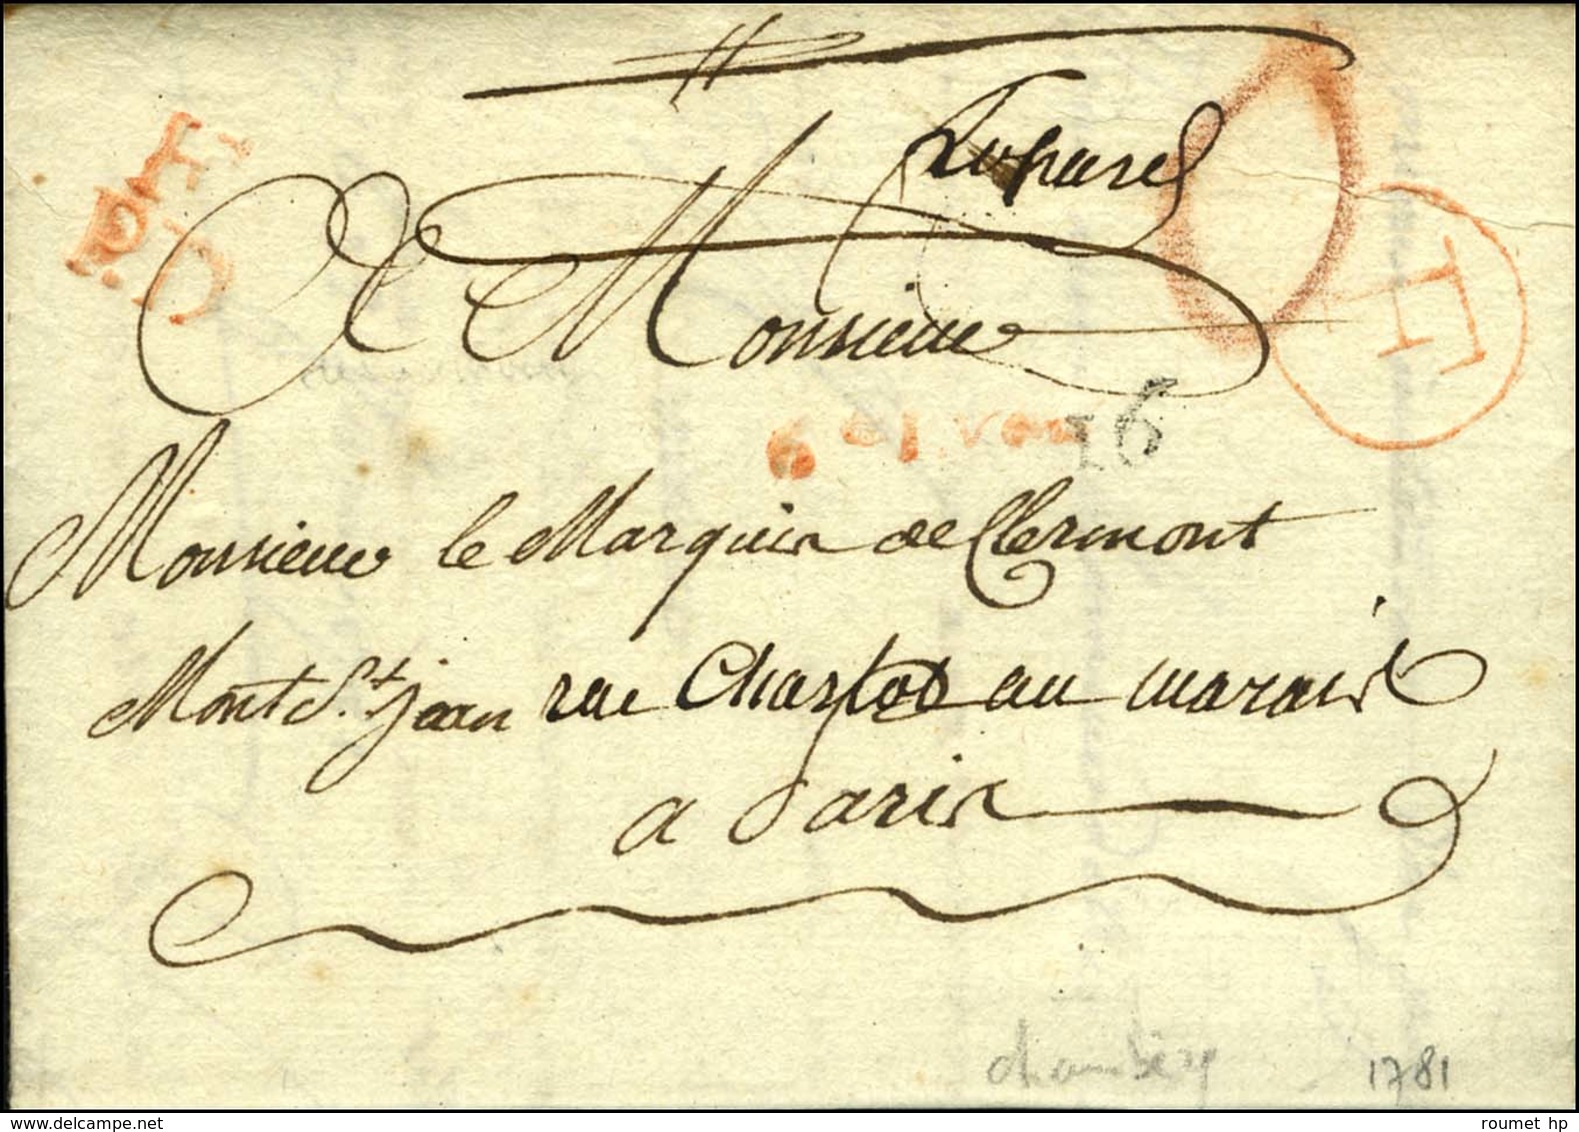 H
P.D
A Monsieur
H
16
Monsieur le Marquis de Clermont
Mont St. jean rue Charlot au marais
a Paris
chambéry
1781
www.delcampe.net
roumet hp